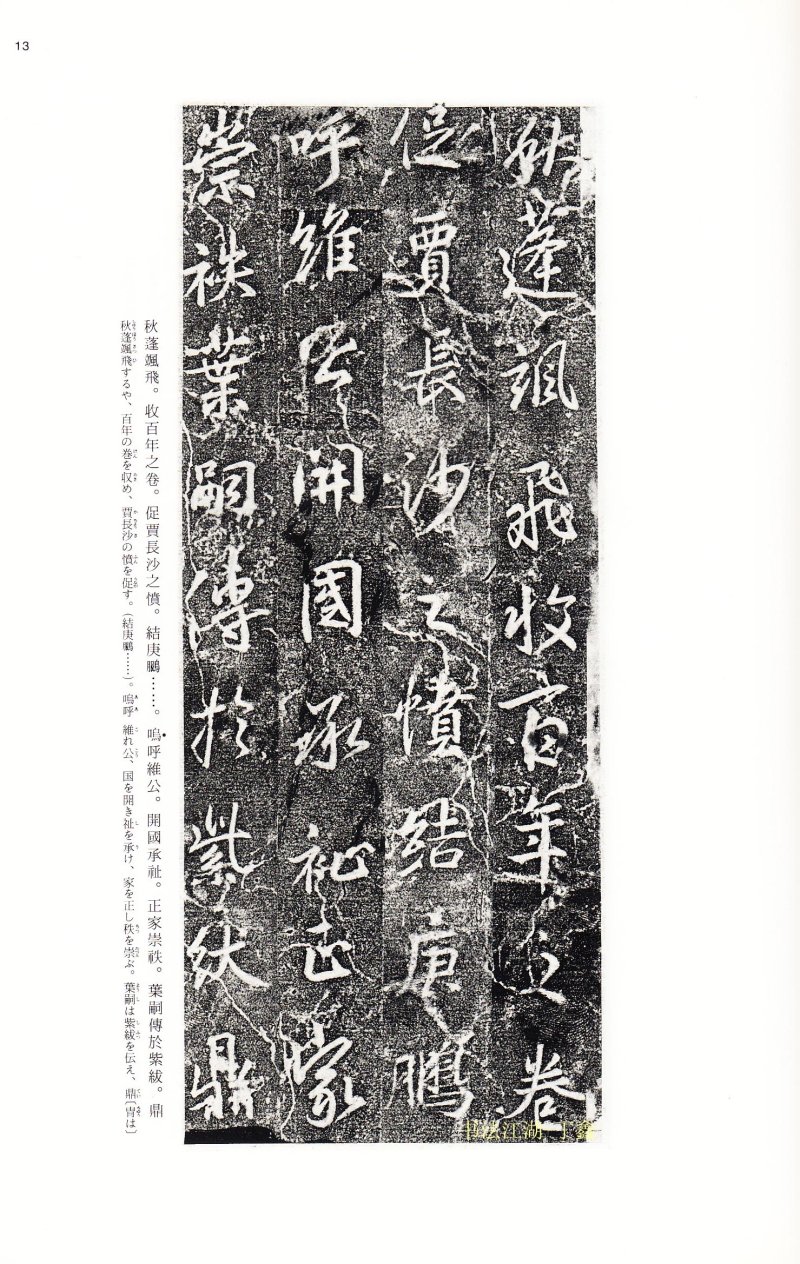 13
秋蓬颯飛收百年之卷
促賈長沙之憤結庚鵬
呼維公開國承祉正家
崇祑葉嗣傳於紫紱鼎
秋蓬颯飛。收百年之卷。促賈長沙之憤。結庚鵬……。嗚呼維公。開國承祉。正家崇祑。葉嗣傳於紫紱。鼎
秋蓬颯飛するや、百年の巻を収め、賈長沙の憤を促す。(結庚鵬……)。嗚呼 維れ公、国を開き祉を承け、家を正し秩を崇ぶ。葉嗣は紫紱を伝え、鼎〔冑は〕
书法江湖